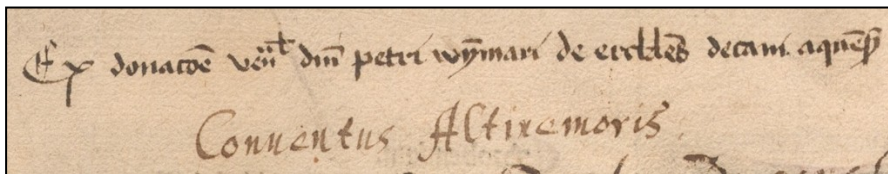 Ex donacōe ven̄li dn̄i petri wȳmari de erclēs decani aquēs
Conuentus Altinemoris